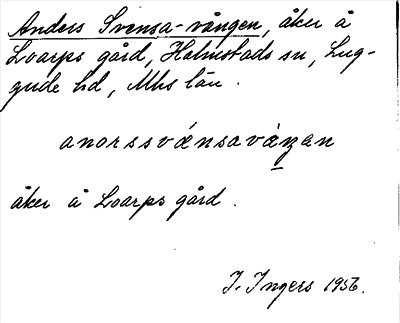 Anders Svensa-vången, åker å
Loarps gård, Halmstads sn, Lug-
gude hd, Mhs län.
anorssvǽnsavàŋan
åker å Loarps gård.
I. Ingers 1956.